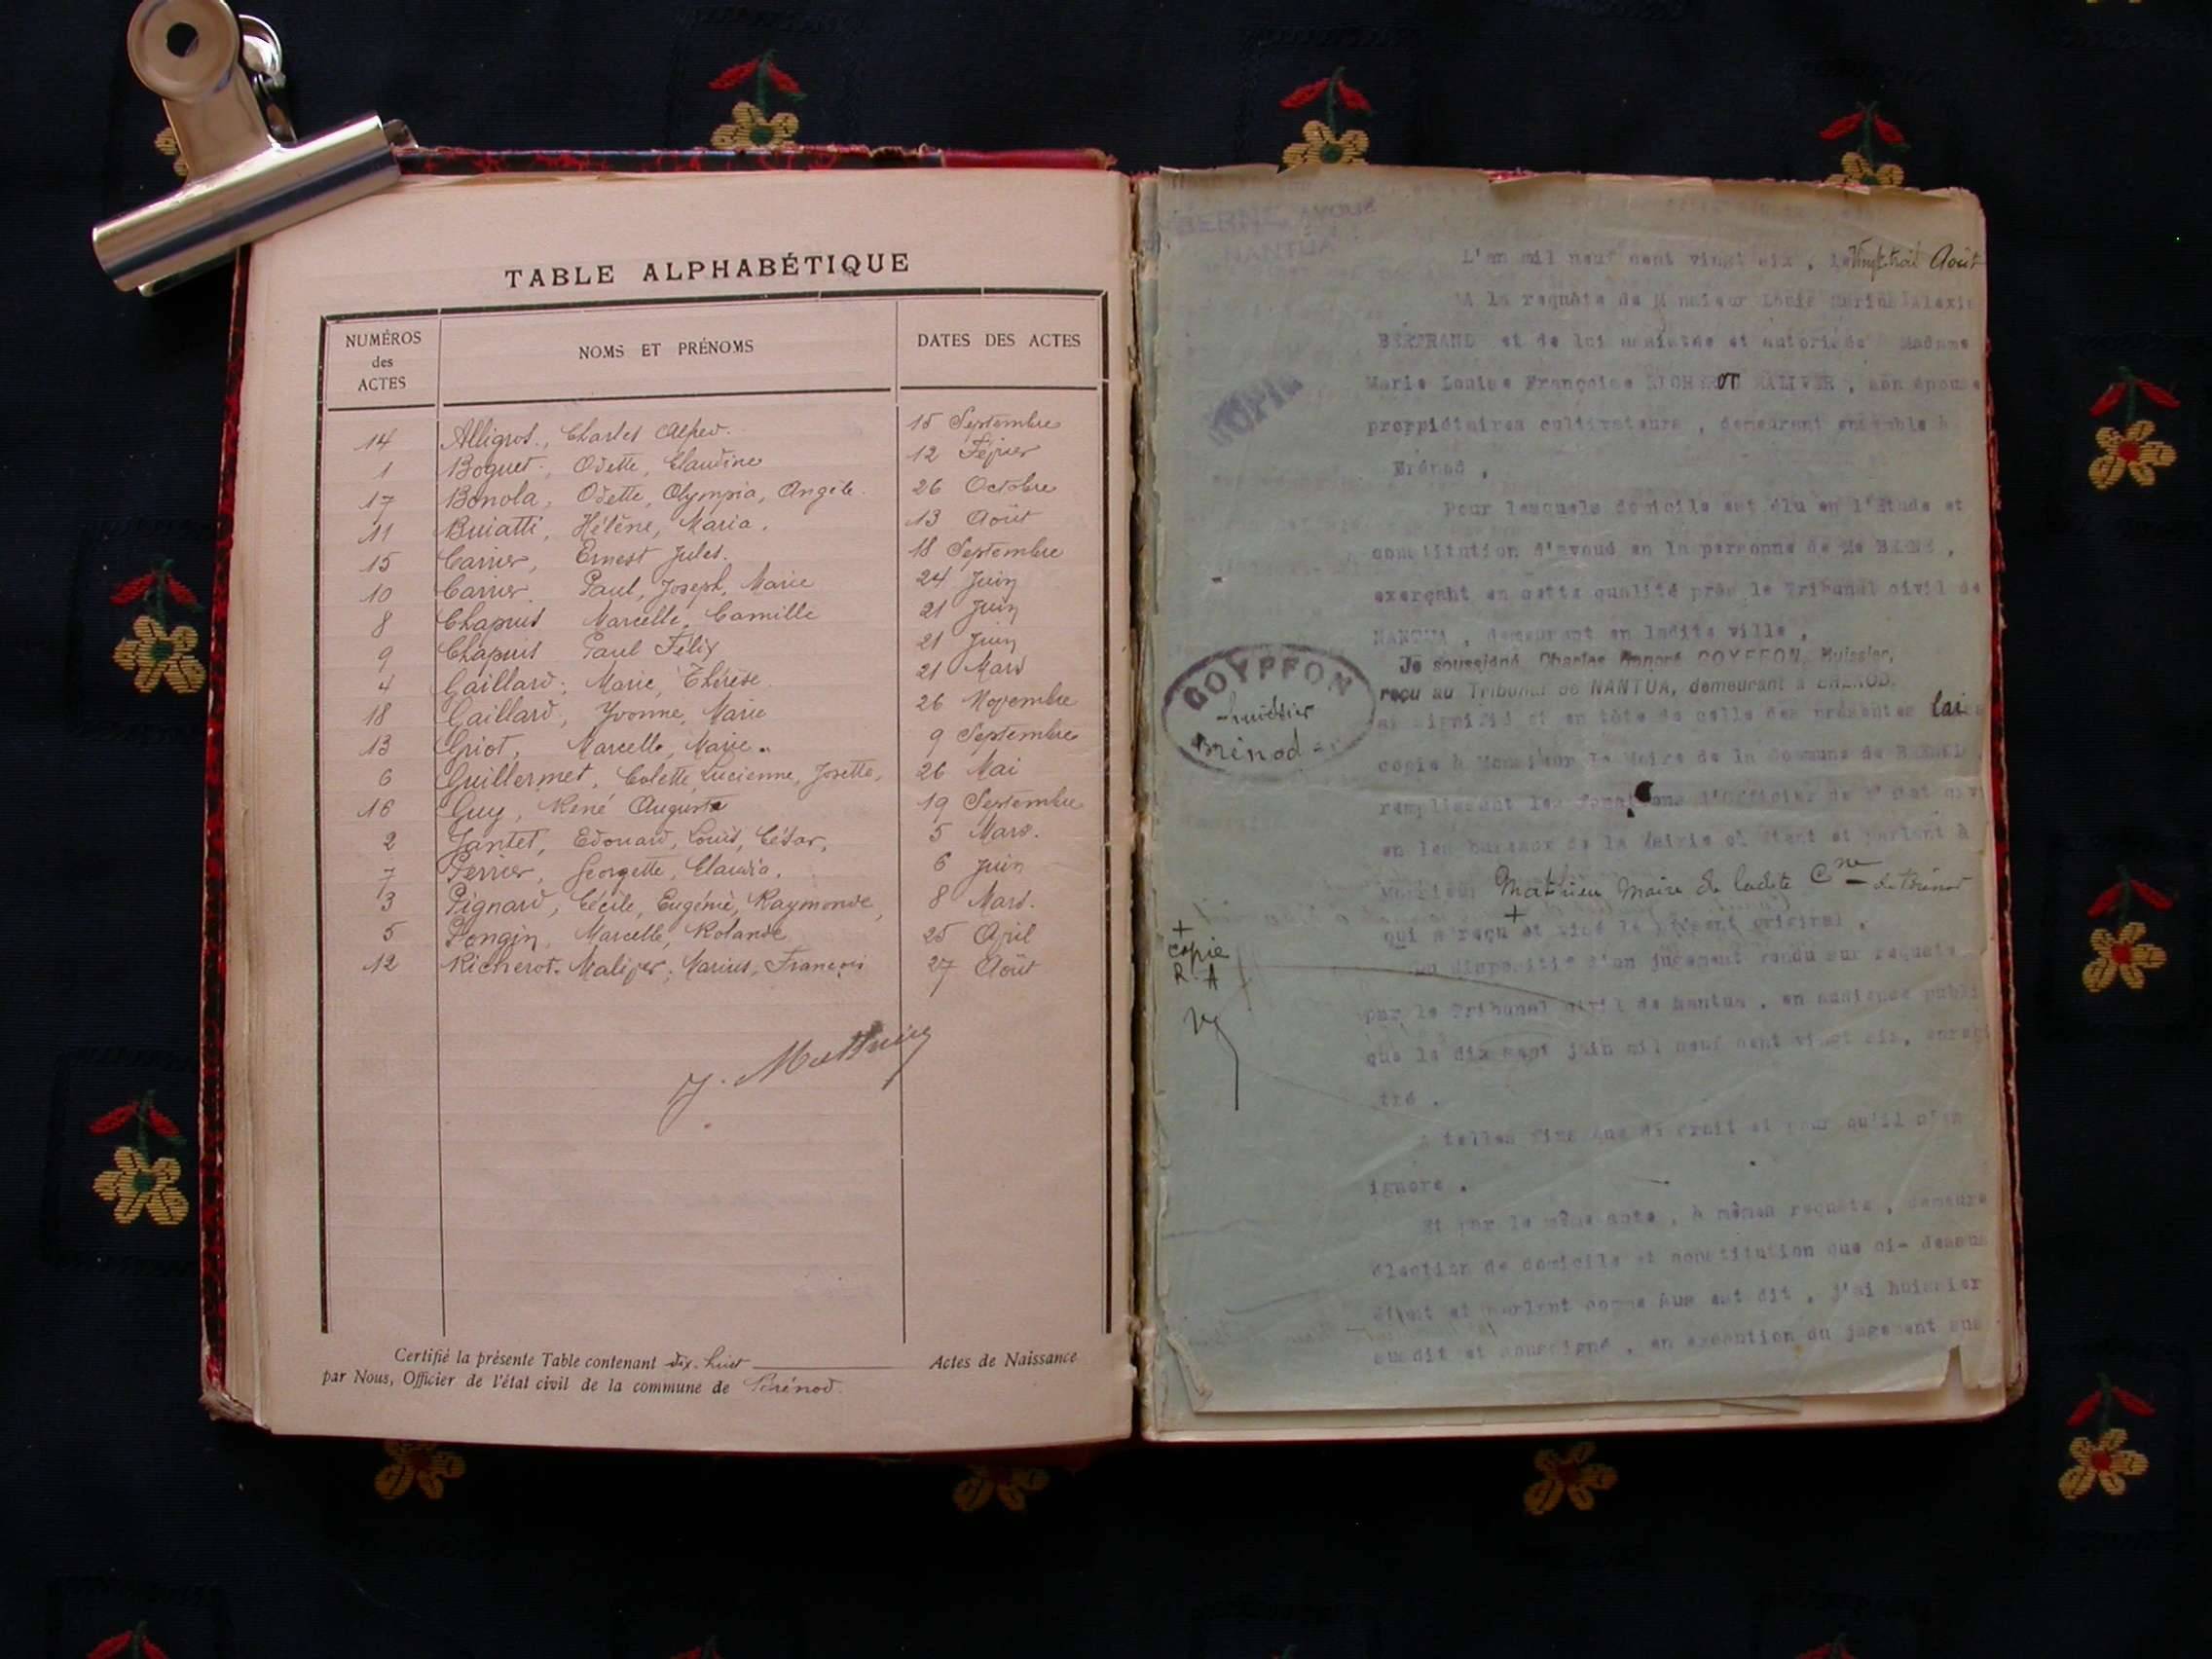 TABLE ALPHABÉTIQUE
NUMÉROS des ACTES
NOMS ET PRÉNOMS
DATES DES ACTES
14 Alligros., Charles Alfred. 15 Septembre
1 Boguet, Odette, Claudine 12 Février
17 Bonola, Odette, Olympia, Angèle. 26 Octobre
11 Buiatti, Hélène, Maria. 13 Août
15 Carrier, Ernest Jules. 18 Septembre
10 Carrier Paul, Joseph, Marie 24 Juin
8 Chapuis Marcelle, Camille 21 Juin
9 Chapuis Paul Félix 21 Juin
4 Gaillard, Marie, Thérèse. 21 Mars
18 Gaillard, Yvonne, Marie 26 Novembre
13 Griot, Marcelle, Marie. 9 Septembre
6 Guillermet, Colette, Lucienne, Josette, 26 Mai
16 Guy, René Auguste 19 Septembre
2 Jantet, Edouard, Louis, César, 5 Mars.
7 Perrier, Georgette, Claudia. 6 Juin
3 Pignard, Cécile, Eugénie, Raymonde, 8 Mars.
5 Pongin, Marcelle, Rolande 25 Avril
12 Richerot-Maliver, Marius, François 27 Août
J. Mathieu
Certifié la présente Table contenant dix-huit Actes de Naissance
par Nous, Officier de l'état civil de la commune de Brénod.
BERNE AVOUÉ
NANTUA
COPIE
L'an mil neuf cent vingt six , le Vingt trois Août
A la requête de Monsieur Louis Marius Alexis
BERTRAND et de lui assistée et autorisée Madame
Marie Louise Françoise RICHEROT MALIVER , son épouse
proppiétaires cultivateurs , demeurant ensemble à
Brénod ,
Pour lesquels domicile est élu en l'Etude et
constitution d'avoué en la personne de Me BERNE ,
exerçant en cette qualité près le Tribunal civil de
NANTUA , demeurant en ladite ville ,
Je soussigné Charles Honoré GOYFFON, Huissier,
reçu au Tribunal de NANTUA, demeurant à BRENOD.
GOYFFON
huissier
Brénod
ai signifié et en tête de celle des présentes lai
copie à Monsieur le Maire de la Commune de BRENOD ,
remplissant les fonctions d'Officier de l'Etat civ
en les bureaux de la Mairie où étant et parlant à
Monsieur Mathieu Maire de ladite Cne de Brénod
qui a reçu et visé le présent original .
+
copie
R. A
Du dispositif d'un jugement rendu sur requête
par le Tribunal civil de Nantua , en audience publi
que le dix sept juin mil neuf cent vingt six, enregi
tré .
A telles fins que de droit et pour qu'il n'en
ignore .
Et par le même acte , à mêmes requête , demeure
élection de domicile et constitution que ci- dessus
étant et parlant comme dit , j'ai huissier
susdit et soussigné , en exécution du jugement sus